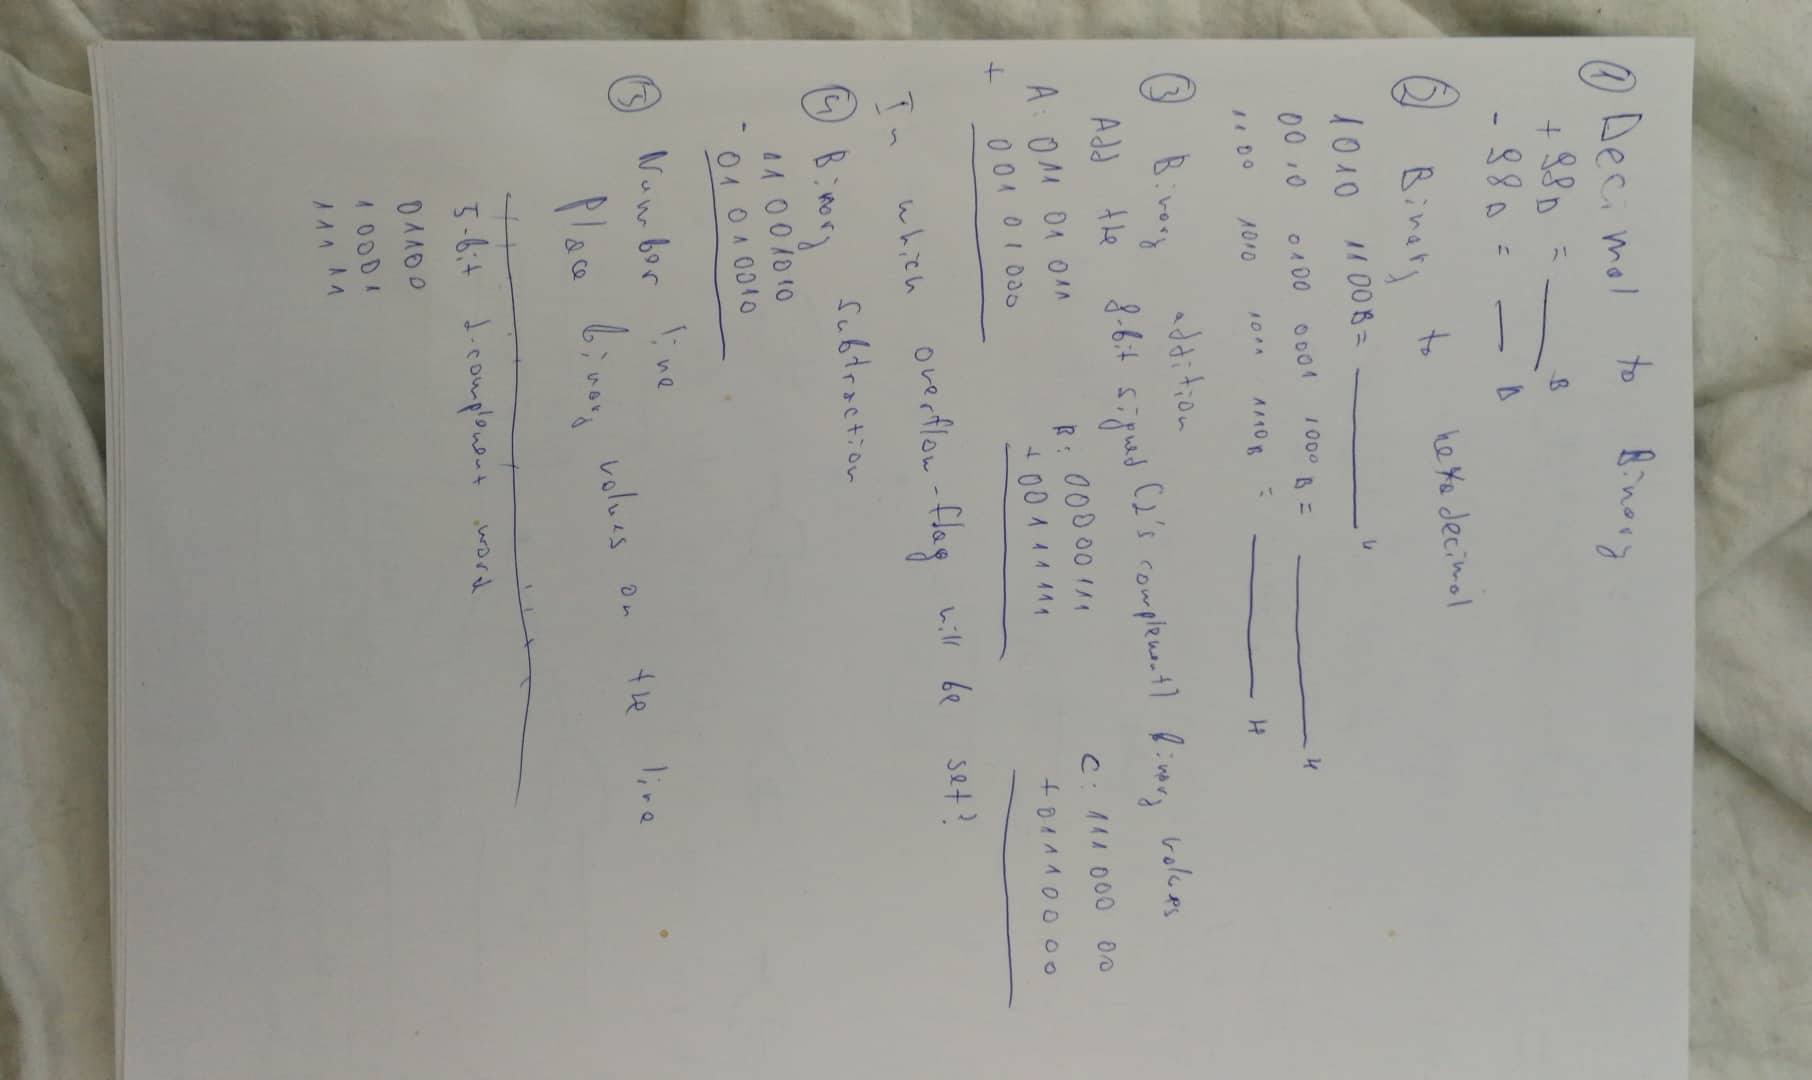 ① Decimal to Binary
+98D = ____ B
- 98D = __ B
② Binary to hexadecimal
1010 1100B= ____ H
0010 0100 0001 1000 B = ____ H
1100 1010 1011 1110B = ____ H
③ Binary addition
Add the 8-bit signed (2's complement) Binary values
A: 011 01 011 B: 00000111 C: 111 000 00
+ 001 01 000 + 00111111 + 01110000
In which overflow-flag will be set?
④ Binary Subtraction
11 001010
- 01 010010
⑤ Number line
Place binary values on the line
5-bit 2-complement word
01100
10001
11111